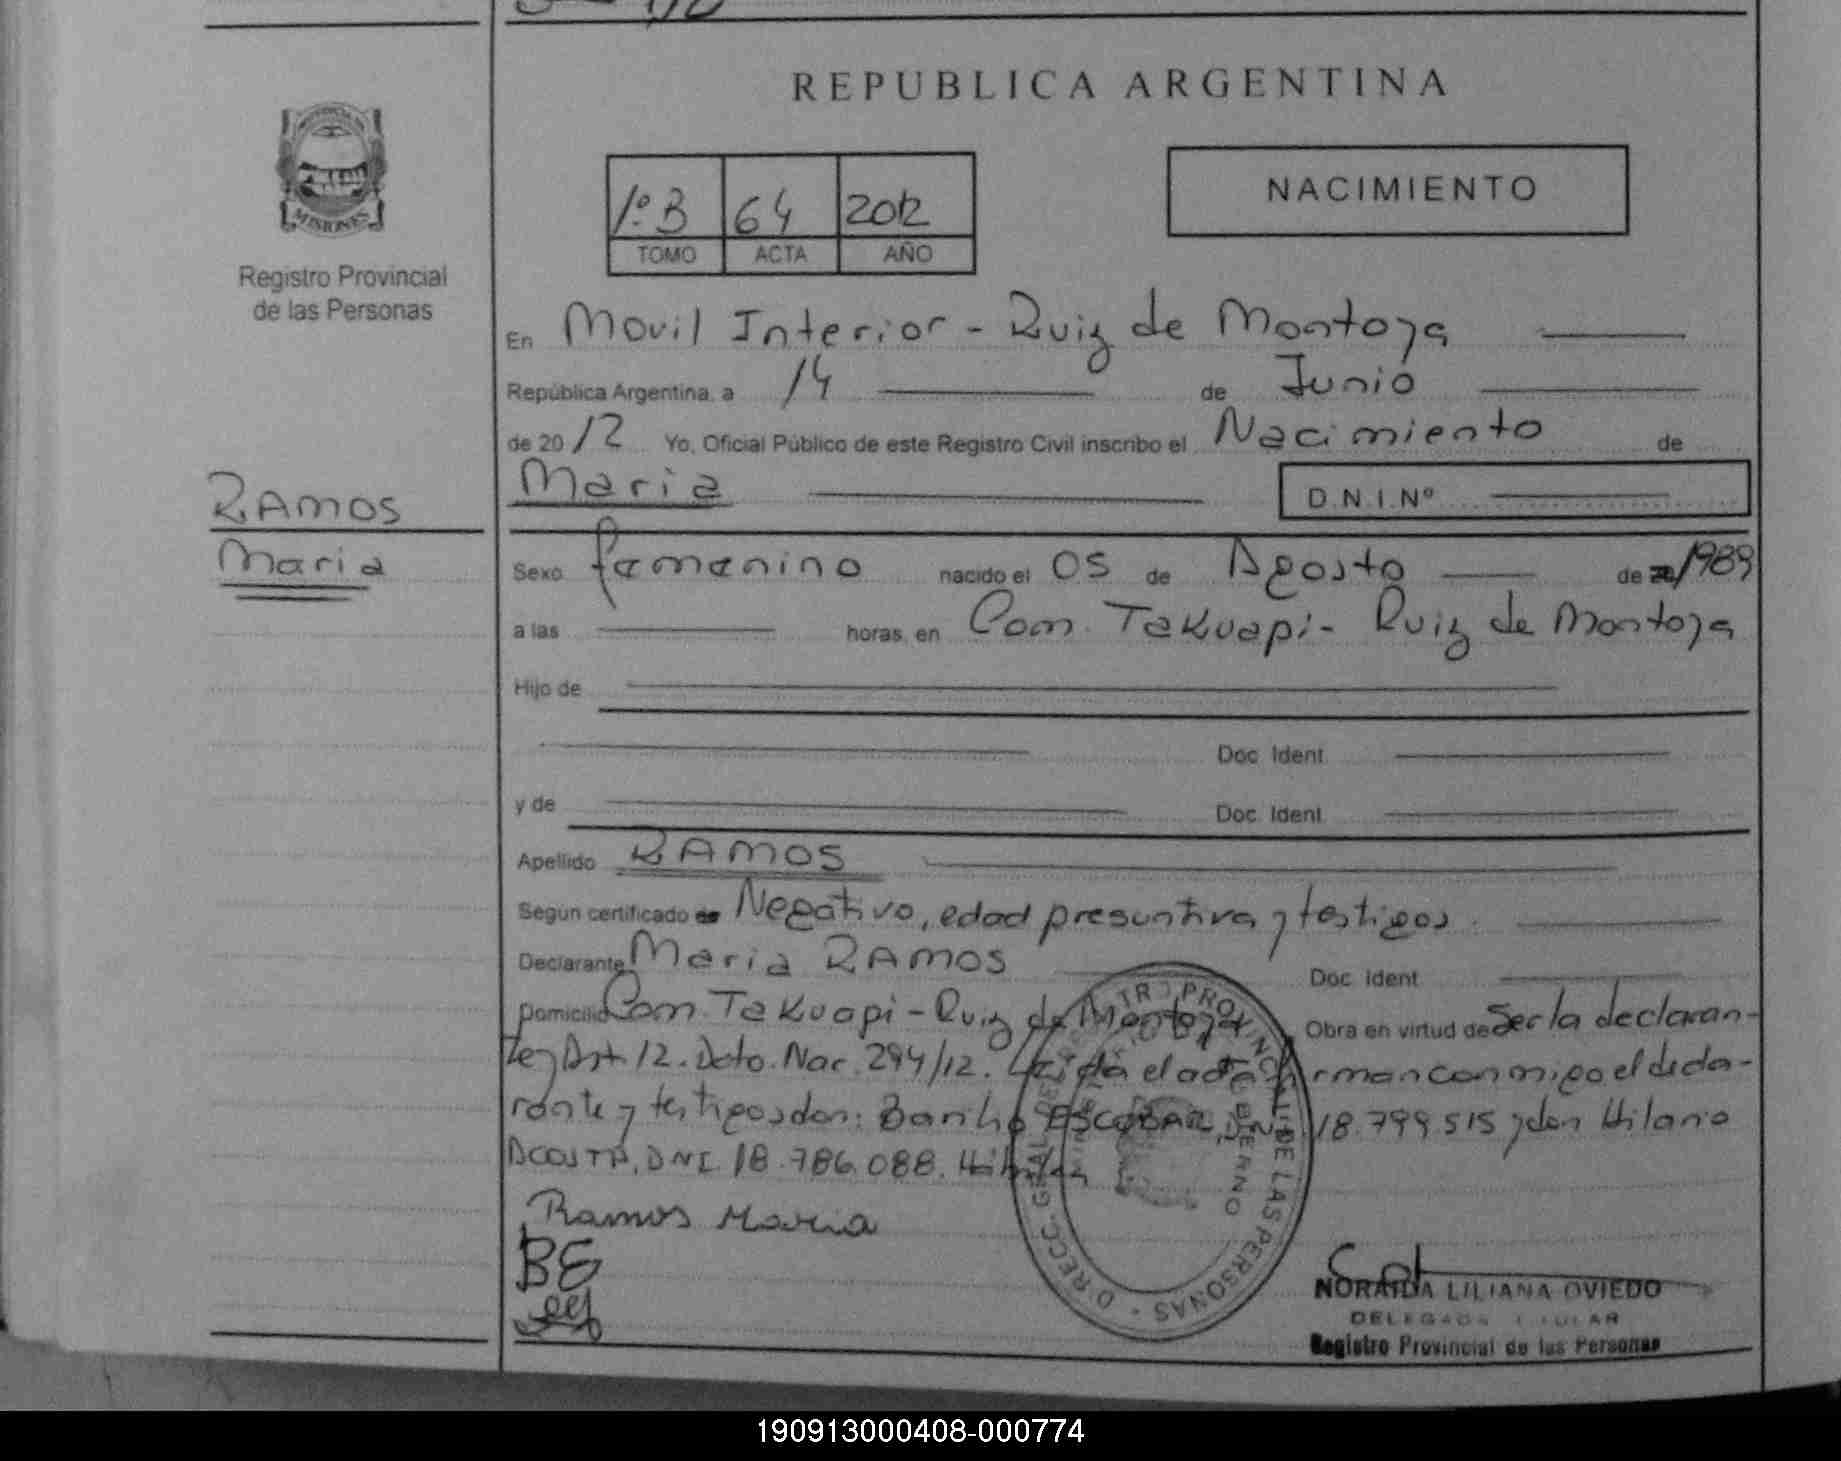 REPUBLICA ARGENTINA
MISIONES
Registro Provincial
de las Personas
1º B 64 2012
TOMO ACTA AÑO
NACIMIENTO
En Movil Interior - Ruiz de Montoya
República Argentina, a 14 de Junio
de 2012 Yo, Oficial Público de este Registro Civil inscribo el Nacimiento de
Maria D.N.I.Nº
RAMOS
Maria
Sexo femenino nacido el 05 de Agosto de 1989
a las horas, en Com. Takuapi - Ruiz de Montoya
Hijo de
Doc. Ident.
y de Doc. Ident.
Apellido RAMOS
Según certificado de Negativo, edad presuntiva y testigos.
Declarante Maria RAMOS Doc. Ident.
Domicilio Com. Takuapi - Ruiz de Montoya Obra en virtud de Ser la declaran-
te y Art. 12. Dcto. Nac. 294/12. Leida el acta firman conmigo el decla-
rante y testigos don: Banho ESCOBAR, DNI 18.799.515 y don Hilario
ACOSTA, DNI. 18.786.088.
Ramos Maria
BE
DIRECC. GRAL. DE REGISTRO PROVINCIAL DE LAS PERSONAS
NORAIDA LILIANA OVIEDO
DELEGADA TITULAR
Registro Provincial de las Personas
190913000408-000774